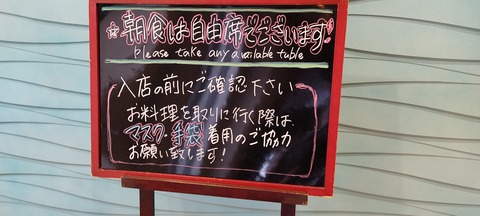 ☆朝食は自由席でございます☆
Please take any available table
入店の前にご確認下さい
お料理を取りに行く際は
マスク・手袋着用のご協力
お願い致します！